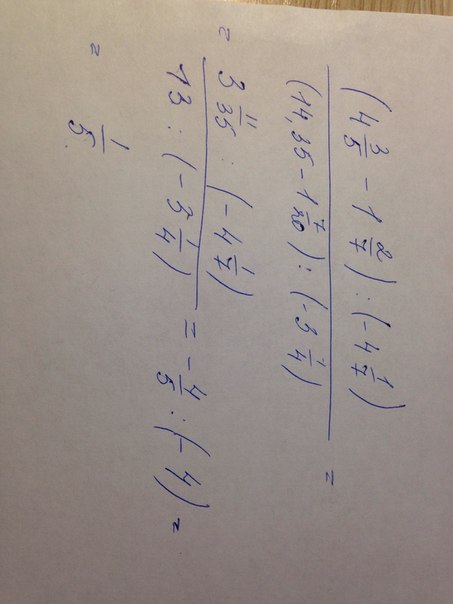 (4 3/5 - 1 2/7) : (-4 1/7)
(14,35 - 1 7/20) : (-3 1/4) =
= 3 11/35 : (-4 1/7)
13 : (-3 1/4) = -4/5 : (-4) =
= 1/5.